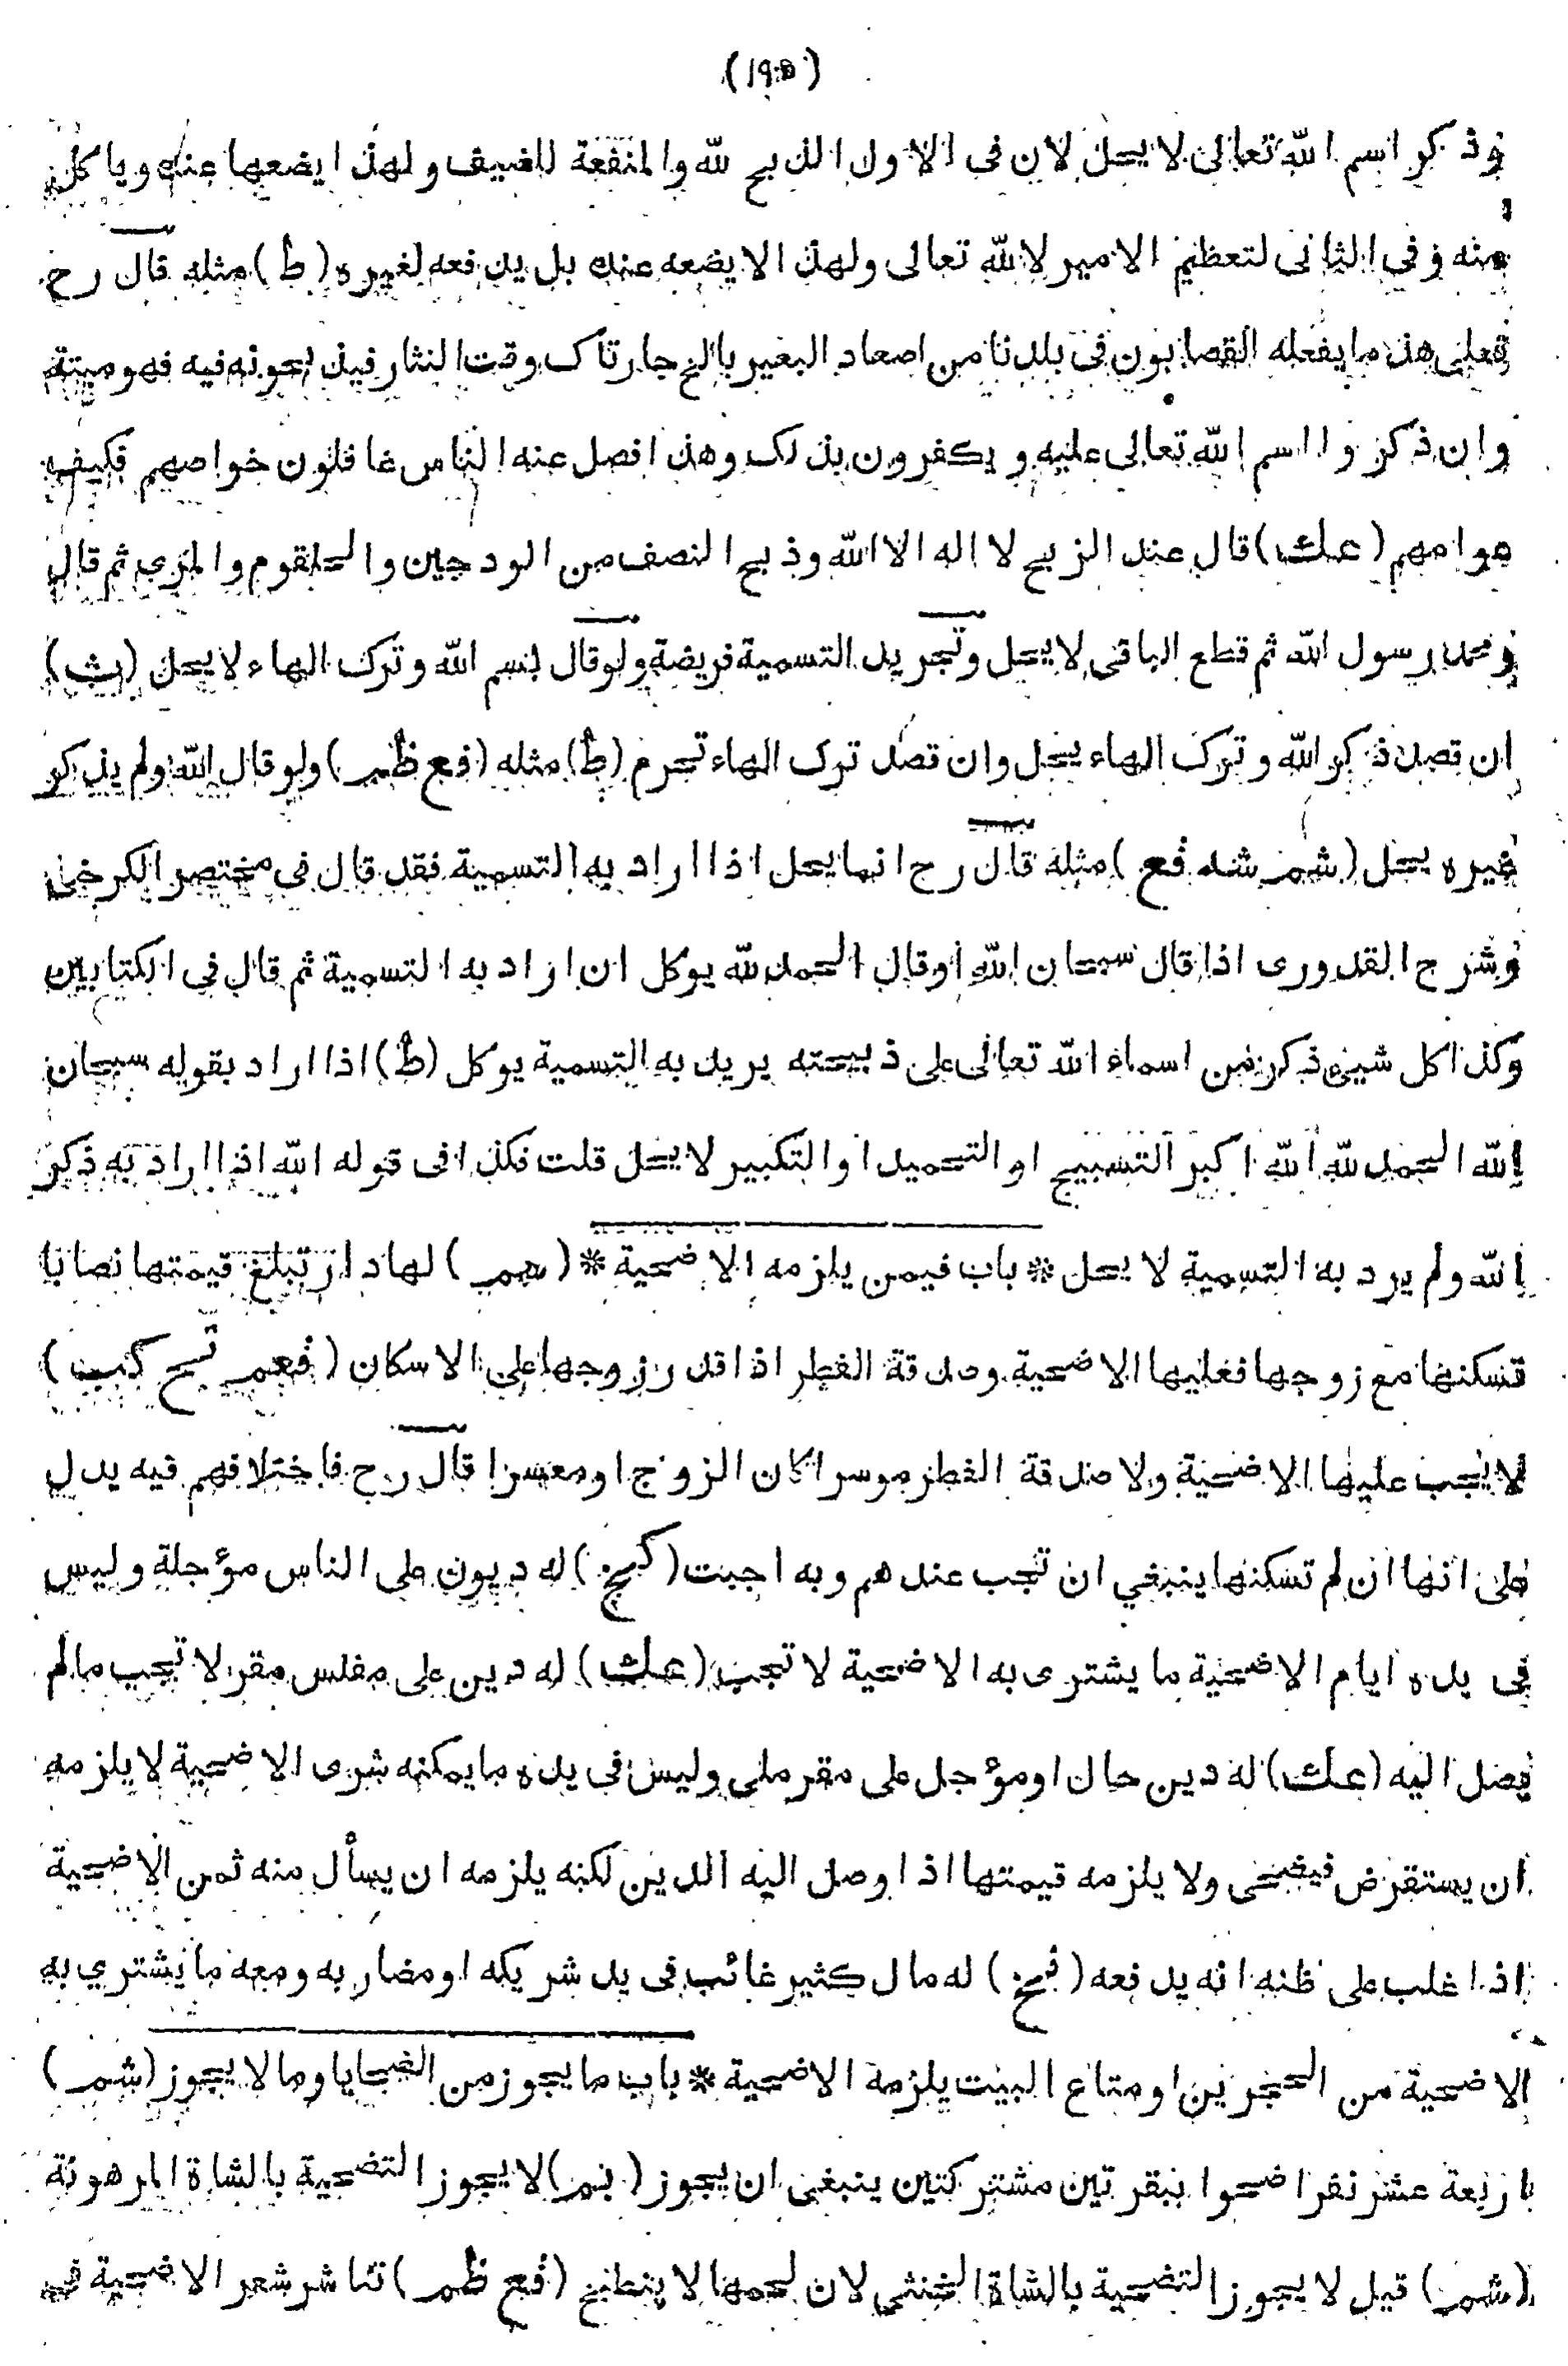 (١٩٥)
وذكر اسم الله تعالى لا يحل لان فى الاول الذبح لله والمنفعة للضيف ولهذا يضعها عنده وياكل
منه وفي الثانى لتعظيم الامير لا لله تعالى ولهذا لا يضعه عنده بل يدفعه لغيره (ط) مثله قال رح
فعلى هذا ما يفعله القصابون فى بلدنا من اصعاد البعير وقت النثار فيذبحونه فيه فهو ميتة
وان ذكروا اسم الله تعالى عليه و يكفرون بذلك وهذا فصل عنه الناس غافلون خواصهم فكيف
عوامهم (عك) قال عند الزبح لا اله الا الله وذبح النصف من الودجين والحلقوم والمرى ثم قال
ومحمد رسول الله ثم قطع الباقى لا يحل وتجريد التسمية فريضة ولو قال بسم الله وترك الهاء لا يحل (بث)
ان قصد ذكر الله وترك الهاء يحل وان قصد ترك الهاء تحرم (ط) مثله (فع ظم) ولو قال الله ولم يذكر
غيره يحل (شم شه فع) مثله قال رح انما يحل اذا اراد به التسمية فقد قال فى مختصر الكرخى
وشرح القدورى اذا قال سبحان الله او قال الحمد لله يوكل ان اراد به التسمية ثم قال فى الكتابين
وكذا كل شيئ ذكر من اسماء الله تعالى على ذبيحته يريد به التسمية يوكل (ط) اذا اراد بقوله سبحان
الله الحمد لله الله اكبر التسبيح او التحميد او التكبير لا يحل قلت فكذا فى قوله الله اذا اراد به ذكر
الله ولم يرد به التسمية لا يحل * باب فيمن يلزمه الاضحية * (سم) لها دار تبلغ قيمتها نصابا
تسكنها مع زوجها فعليها الاضحية وصدقة الفطر اذا قدر زوجها على الاسكان (فعم تح كب)
لا يجب عليها الاضحية ولا صدقة الفطر موسرا كان الزوج او معسرا قال رح فاختلافهم فيه يدل
على انها ان لم تسكنها ينبغي ان تجب عندهم وبه اجبت (كخ) له ديون على الناس مؤجلة وليس
فى يده ايام الاضحية ما يشترى به الاضحية لا تجب (عك) له دين على مفلس مقر لا تجب مالم
يصل اليه (عك) له دين حال او مؤجل على مقر ملى وليس فى يده ما يمكنه شرى الاضحية لا يلزمه
ان يستقرض فيضحى ولا يلزمه قيمتها اذا وصل اليه الدين لكنه يلزمه ان يسأل منه ثمن الاضحية
اذا غلب على ظنه انه يدفعه (فخ) له مال كثير غائب فى يد شريكه او مضاربه ومعه ما يشتري به
الاضحية من الحجرين او متاع البيت يلزمه الاضحية * باب ما يجوز من الضحايا وما لا يجوز (شم)
اربعة عشر نفرا ضحوا ببقرتين مشتركتين ينبغى ان يجوز (بم) لا يجوز التضحية بالشاة المرهونة
(شم) قيل لا يجوز التضحية بالشاة الخنثى لان لحمها لا ينطبخ (فع ظم) تناثر شعر الاضحية فى